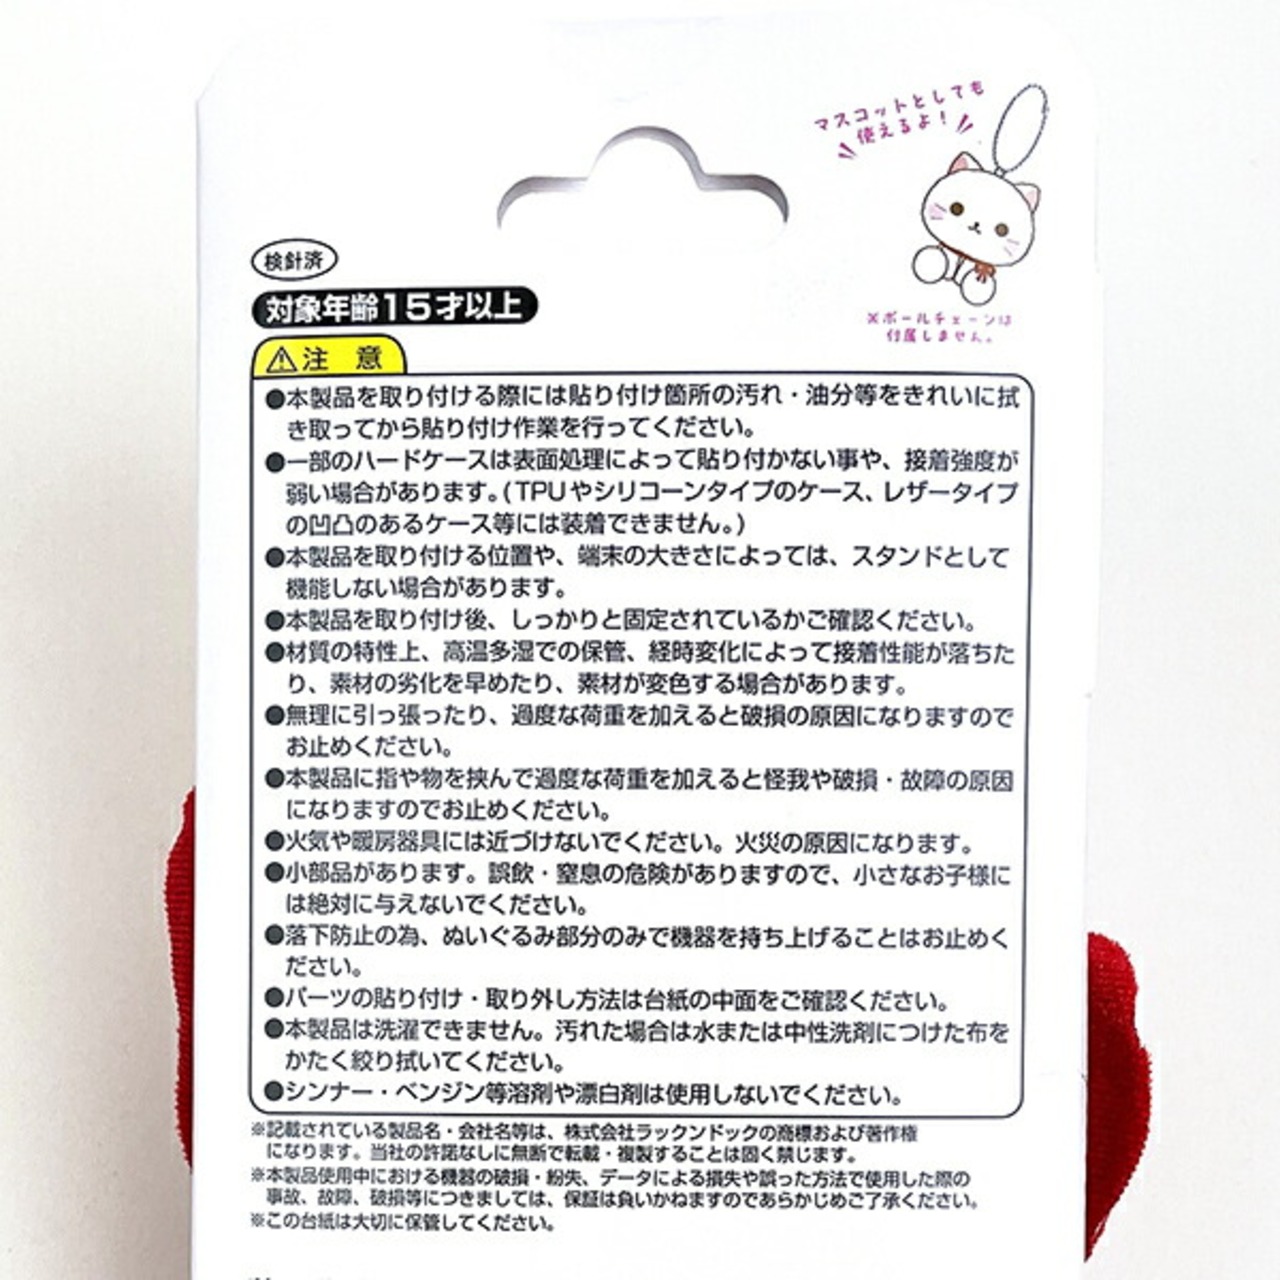 マスコットとしても
使えるよ!
※ボールチェーンは
付属しません。
検針済
対象年齢15才以上
注 意
●本製品を取り付ける際には貼り付け箇所の汚れ・油分等をきれいに拭
き取ってから貼り付け作業を行ってください。
●一部のハードケースは表面処理によって貼り付かない事や、接着強度が
弱い場合があります。(TPUやシリコーンタイプのケース、レザータイプ
の凹凸のあるケース等には装着できません。)
●本製品を取り付ける位置や、端末の大きさによっては、スタンドとして
機能しない場合があります。
●本製品を取り付け後、しっかりと固定されているかご確認ください。
●材質の特性上、高温多湿での保管、経時変化によって接着性能が落ちた
り、素材の劣化を早めたり、素材が変色する場合があります。
●無理に引っ張ったり、過度な荷重を加えると破損の原因になりますので
お止めください。
●本製品に指や物を挟んで過度な荷重を加えると怪我や破損・故障の原因
になりますのでお止めください。
●火気や暖房器具には近づけないでください。火災の原因になります。
●小部品があります。誤飲・窒息の危険がありますので、小さなお子様に
は絶対に与えないでください。
●落下防止の為、ぬいぐるみ部分のみで機器を持ち上げることはお止めく
ださい。
●パーツの貼り付け・取り外し方法は台紙の中面をご確認ください。
●本製品は洗濯できません。汚れた場合は水または中性洗剤につけた布を
かたく絞り拭いてください。
●シンナー・ベンジン等溶剤や漂白剤は使用しないでください。
※記載されている製品名・会社名等は、株式会社ラックンドックの商標および著作権
になります。当社の許諾なしに無断で転載・複製することは固く禁じます。
※本製品使用中における機器の破損・紛失、データによる損失や誤った方法で使用した際の
事故、故障、破損等につきましては、保証は負いかねますのであらかじめご了承ください。
※この台紙は大切に保管してください。